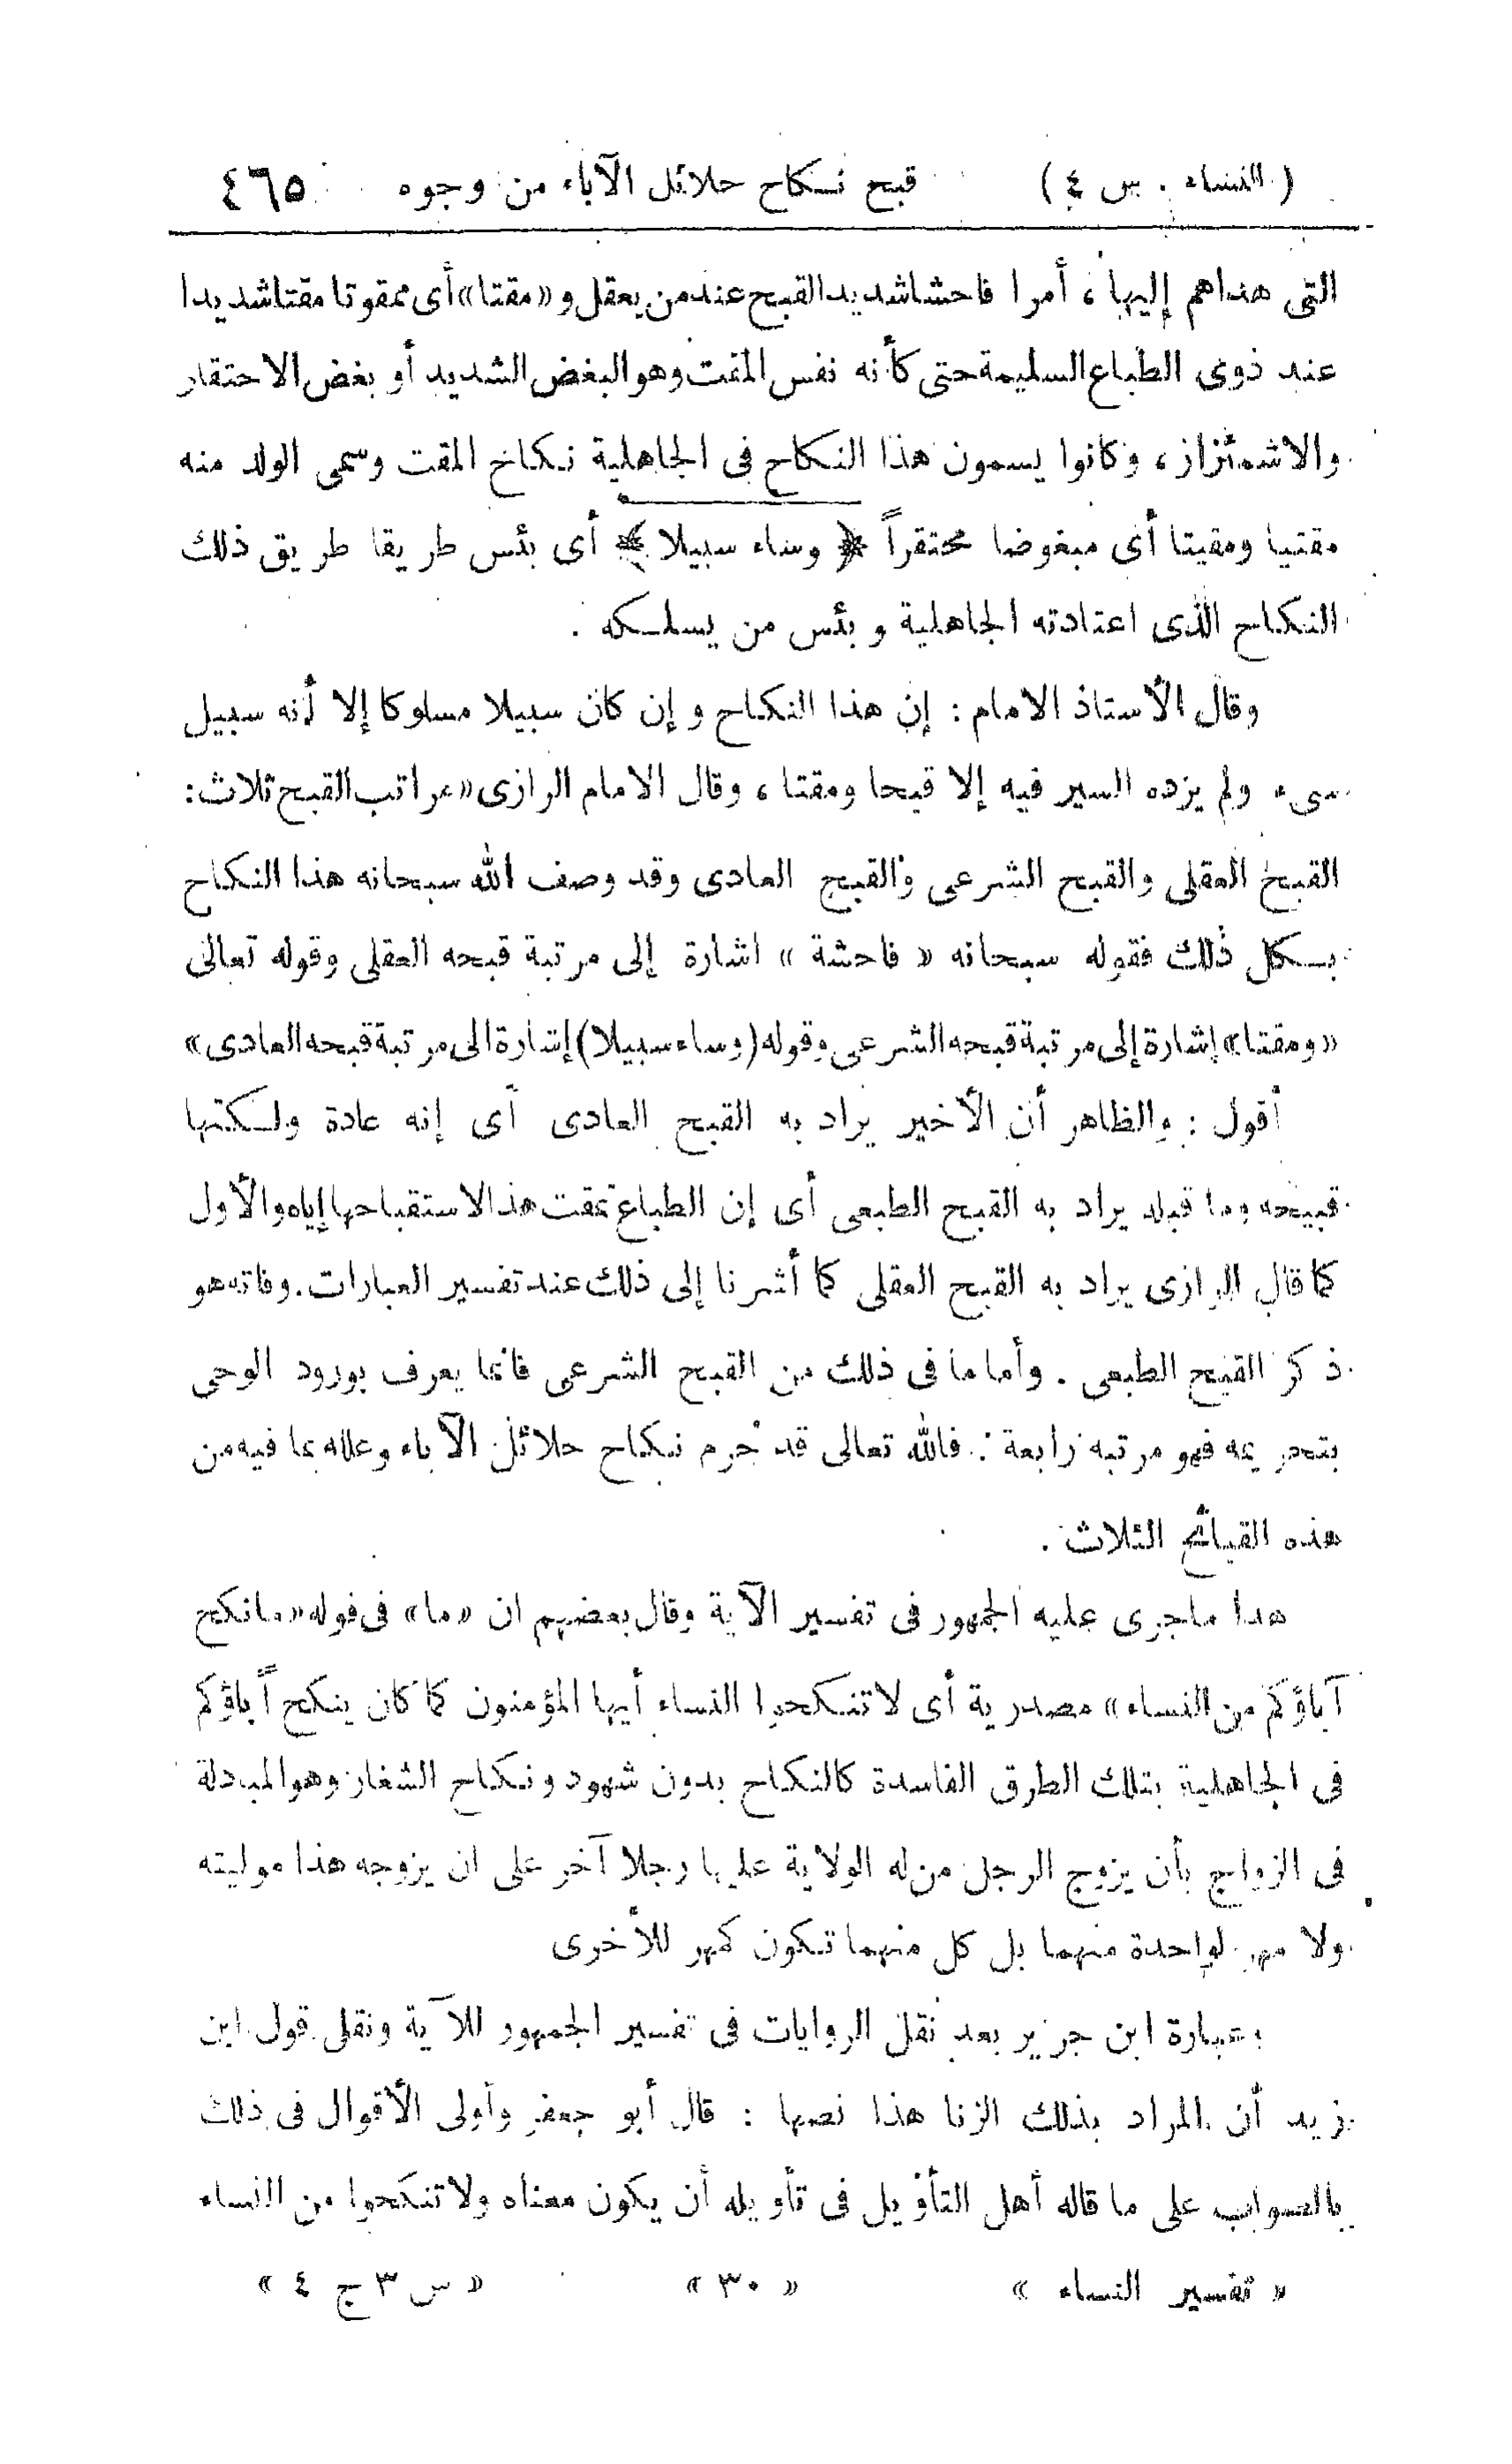 ( النساء . س ٤ ) قبح نكاح حلائل الآباء من وجوه ٤٦٥
التى هداهم إليها ، أمرا فاحشا شديد القبح عند من يعقل و «مقتا» أى ممقوتا مقتا شديدا
عند ذوى الطباع السليمة حتى كأنه نفس المقت وهو البغض الشديد أو بغض الاحتقار
والاشمئزاز ، وكانوا يسمون هذا النكاح فى الجاهلية نكاح المقت وسمى الولد منه
مقتيا ومقيتا أى مبغوضا محتقراً ﴿ وساء سبيلا ﴾ أى بئس طريقا طريق ذلك
النكاح الذى اعتادته الجاهلية وبئس من يسلكه .
وقال الأستاذ الامام : إن هذا النكاح وإن كان سبيلا مسلوكا إلا أنه سبيل
سىء ولم يزده السير فيه إلا قبحا ومقتا ، وقال الامام الرازى « مراتب القبح ثلاث :
القبح العقلى والقبح الشرعى والقبح العادى وقد وصف الله سبحانه هذا النكاح
بكل ذلك فقوله سبحانه « فاحشة » اشارة إلى مرتبة قبحه العقلى وقوله تعالى
« ومقتا » إشارة إلى مرتبة قبحه الشرعى وقوله ( وساء سبيلا ) إشارة الى مرتبة قبحه العادى »
أقول : والظاهر أن الأخير يراد به القبح العادى أى إنه عادة ولكنها
قبيحه وما قبله يراد به القبح الطبعى أى إن الطباع تمقت هذا لاستقباحها إياه والأول
كما قال الرازى يراد به القبح العقلى كما أشرنا إلى ذلك عند تفسير العبارات . وفاته هو
ذكر القبح الطبعى . وأما ما فى ذلك من القبح الشرعى فانما يعرف بورود الوحى
بتحريمه فهو مرتبه رابعة : فالله تعالى قد حرم نكاح حلائل الآباء وعلله بما فيه من
هذه القبائح الثلاث .
هدا ماجرى عليه الجمهور فى تفسير الآية وقال بعضهم ان «ما» فى قوله « ما نكح
آباؤكم من النساء » مصدرية أى لا تنكحوا النساء أيها المؤمنون كما كان ينكح آباؤكم
فى الجاهلية بتلك الطرق الفاسدة كالنكاح بدون شهود ونكاح الشغار وهو المبدلة
فى الزواج بأن يزوج الرجل من له الولاية عليها رجلا آخر على ان يزوجه هذا موليته
ولا مهر لواحدة منهما بل كل منهما تكون كمهر للأخرى
وعبارة ابن جرير بعد نقل الروايات فى تفسير الجمهور للآية ونقل قول ابن
زيد أن المراد بذلك الزنا هذا نصها : قال أبو جعفر وأولى الأقوال فى ذلك
بالصواب على ما قاله أهل التأويل فى تأويله أن يكون معناه ولا تنكحوا من النساء
« تفسير النساء » « ٣٠ » « س ٣ ج ٤ »